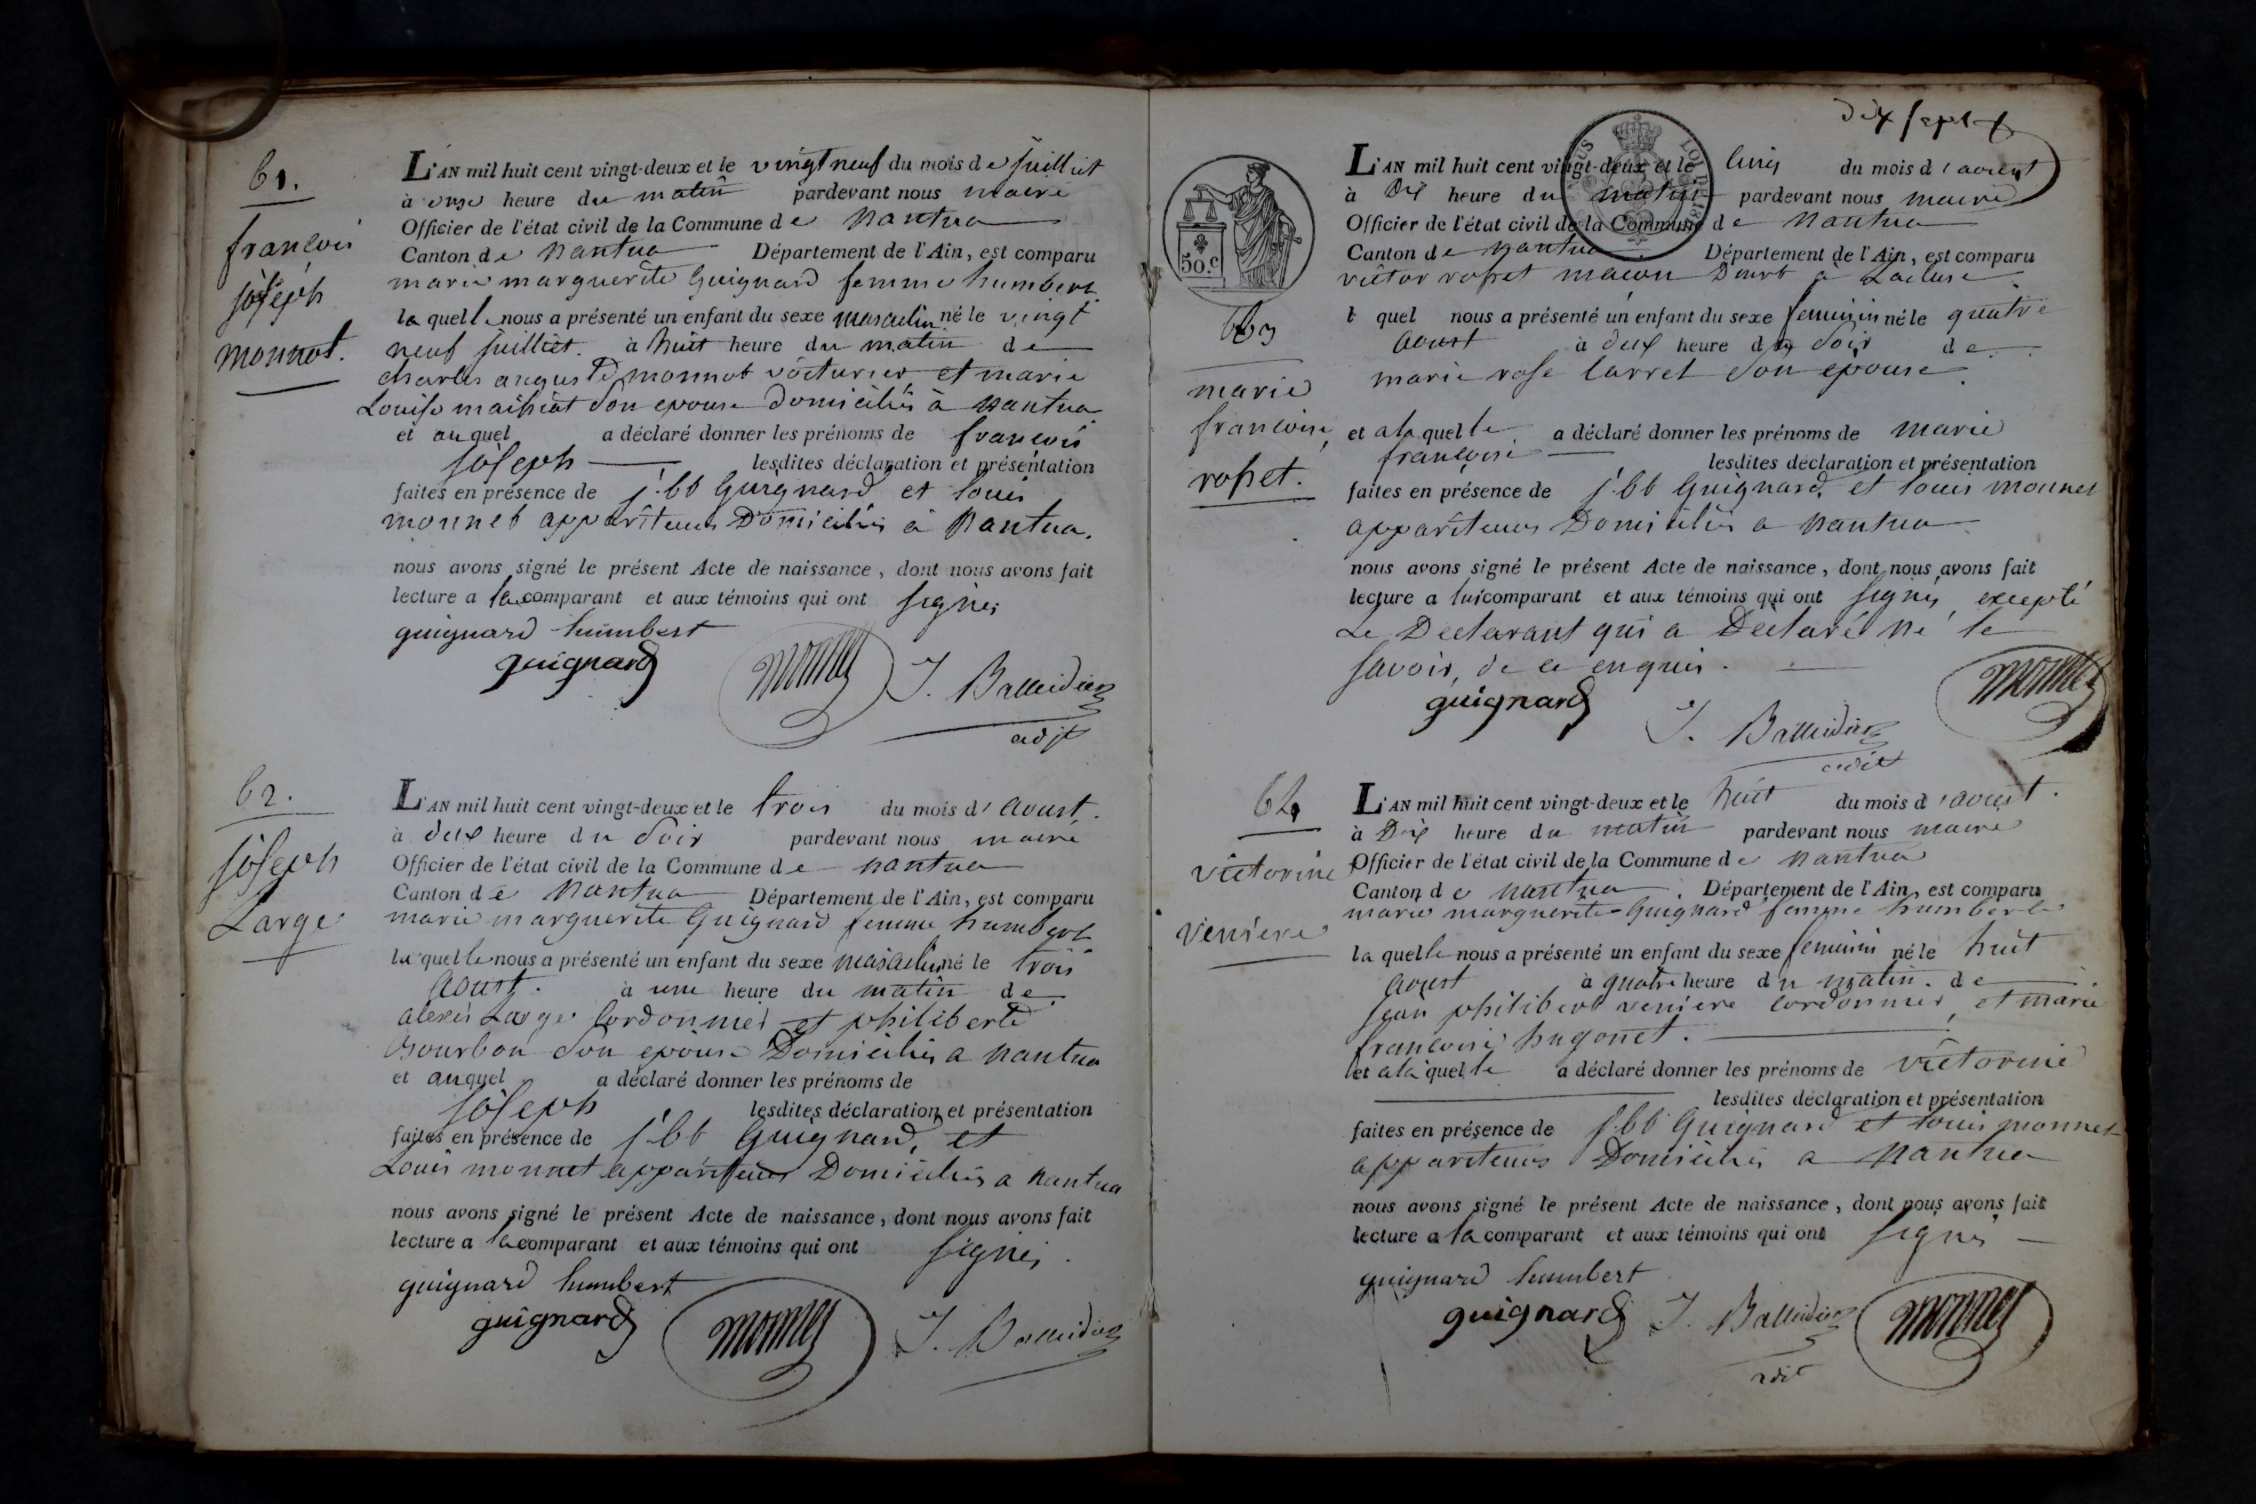 61.
françois
joseph
monnot.
L'AN mil huit cent vingt-deux et le vingt neuf du mois de juilliet
à onze heure du matin pardevant nous maire
Officier de l'état civil de la Commune de nantua
Canton de nantua Département de l'Ain, est comparu
marie marguerite Guignard femme humbert
laquelle nous a présenté un enfant du sexe masculin né le vingt
neuf juilliet. à huit heure du matin de
charles auguste monnot voiturier et marie
Louise son epouse domiciliés à nantua
et auquel a déclaré donner les prénoms de françois
joseph lesdites déclaration et présentation
faites en présence de j.bt Guignard et louis
monnet appariteurs Domiciliés à Nantua.
nous avons signé le présent Acte de naissance, dont nous avons fait
lecture a la comparant et aux témoins qui ont signés
guignard humbert
guignard monnet J. Balleidier
adjt
62.
joseph
Large
L'AN mil huit cent vingt-deux et le trois du mois d'aoust.
à deux heure du soir pardevant nous maire
Officier de l'état civil de la Commune de nantua
Canton de nantua Département de l'Ain, est comparu
marie marguerite Guignard femme humbert
laquelle nous a présenté un enfant du sexe masculin né le trois
aoust. à une heure du matin de
alexis Large Cordonnier et philiberte
Bourbon son epouse Domiciliés a nantua
et auquel a déclaré donner les prénoms de
joseph lesdites déclaration et présentation
faites en présence de j.bt Guignard, et
Louis monnet appariteurs Domiciliés a nantua
nous avons signé le présent Acte de naissance, dont nous avons fait
lecture a la comparant et aux témoins qui ont signés.
guignard humbert
guignard monnet J. Balleidier
dix sept
50.c
63
marie
francoise
rosset.
L'AN mil huit cent vingt-deux et le cinq du mois d'aoust
à dix heure du matin pardevant nous maire
Officier de l'état civil de la Commune de nantua
Canton de nantua Département de l'Ain, est comparu
victor rosset macon Dmrt à Lacluse
l quel nous a présenté un enfant du sexe feminin né le quatre
aoust à deux heure du soir de
marie rose carret son epouse.
et a la quelle a déclaré donner les prénoms de marie
françoise lesdites déclaration et présentation
faites en présence de j.bt Guignard, et louis monnet
appariteurs Domiciliés a nantua
nous avons signé le présent Acte de naissance, dont nous avons fait
lecture a lui comparant et aux témoins qui ont signés, excepté
Le Declarant qui a Declaré ne le
savoir, de ce enquis.
guignard J. Balleidier monnet
adjt
64
victorine
veniere
L'AN mil huit cent vingt-deux et le huit du mois d'aoust.
à Dix heure du matin pardevant nous maire
Officier de l'état civil de la Commune de nantua
Canton de nantua. Département de l'Ain, est comparu
marie marguerite Guignard femme humbert
laquelle nous a présenté un enfant du sexe feminin né le huit
aoust à quatre heure du matin. de
jean philibert veniere cordonnier, et marie
francoise hugonet.
et a la quelle a déclaré donner les prénoms de victorine
lesdites déclaration et présentation
faites en présence de j.bt Guignard et louis monnet
appariteurs Domiciliés a nantua
nous avons signé le présent Acte de naissance, dont nous avons fait
lecture a la comparant et aux témoins qui ont signés
guignard humbert
guignard J. Balleidier monnet
adjt